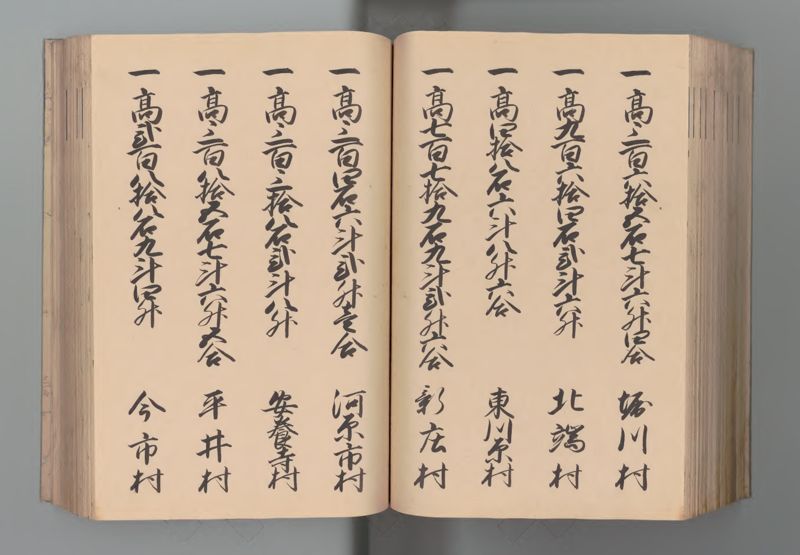 一高三百六拾五石七斗六升四合 堀川村
一高九百六拾四石弐斗六升 北端村
一高四拾八石六斗八升六合 東川原村
一高七百七拾九石九斗弐升六合 新庄村
一高三百四石六斗弐升壱合 河原市村
一高三百三拾八石弐斗八升 安養寺村
一高三百八拾五石七斗六升五合 平井村
一高弐百八拾八石九斗四升 今市村